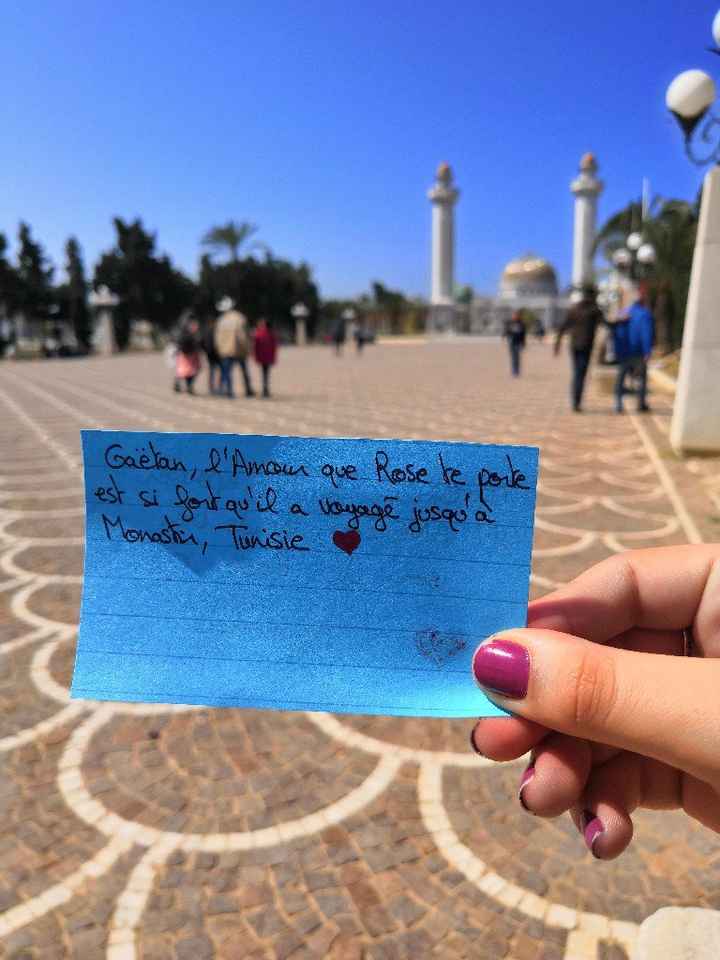 Gaëtan, l'Amour que Rose te porte
est si fort qu'il a voyagé jusqu'à
Monastir, Tunisie ♥